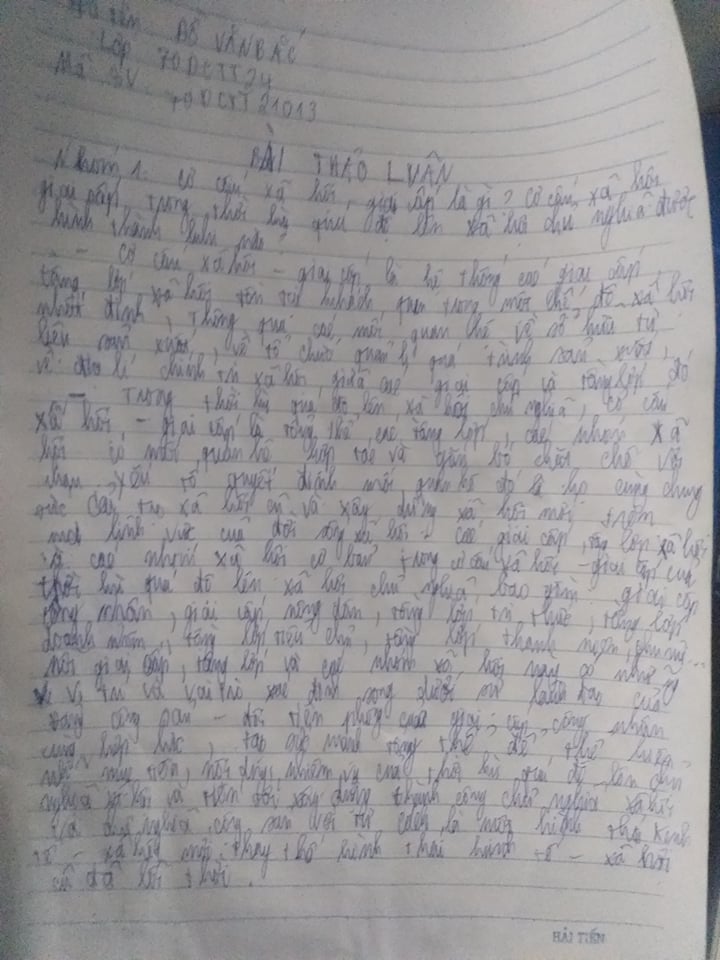 Họ tên: ĐỖ VĂN BẮC
Lớp 70DCTT24
Mã SV 70DCTT21013
BÀI THẢO LUẬN
Nhóm 1. Cơ cấu xã hội, giai cấp là gì? Cơ cấu xã hội
giai cấp trong thời kỳ quá độ lên xã hội chủ nghĩa được
hình thành như nào
- Cơ cấu xã hội - giai cấp là hệ thống các giai cấp,
tầng lớp xã hội tồn tại khách quan trong một chế độ xã hội
nhất định, thông qua các mối quan hệ về sở hữu tư
liệu sản xuất, về tổ chức quản lý quá trình sản xuất,
về địa vị chính trị xã hội, giữa các giai cấp và tầng lớp đó
- Trong thời kỳ quá độ lên xã hội chủ nghĩa, cơ cấu
xã hội - giai cấp là tổng thể các tầng lớp, các nhóm xã
hội có mối quan hệ hợp tác và gắn bó chặt chẽ với
nhau. yếu tố quyết định mối quan hệ đó là họ cùng chung
sức cải tạo xã hội cũ và xây dựng xã hội mới trên
mọi lĩnh vực của đời sống xã hội - các giai cấp, tầng lớp xã hội
và các nhóm xã hội cơ bản trong cơ cấu xã hội - giai cấp của
thời kỳ quá độ lên xã hội chủ nghĩa bao gồm: giai cấp
công nhân, giai cấp nông dân, tầng lớp tri thức, tầng lớp
doanh nhân, tầng lớp tiểu chủ, tầng lớp thanh niên, phụ nữ...
mỗi giai cấp, tầng lớp và các nhóm xã hội này có những
vị trí và vai trò xác định song dưới sự lãnh đạo của
Đảng cộng sản - đội tiên phong của giai cấp công nhân
cùng hợp lực, tạo sức mạnh tổng thể để thực hiện
những mục tiêu, nội dung, nhiệm vụ của thời kì quá độ lên chủ
nghĩa xã hội và tiến tới xây dựng thành công chủ nghĩa xã hội
và chủ nghĩa cộng sản với tư cách là một hình thái kinh
tế - xã hội mới thay thế hình thái kinh tế - xã hội
cũ đã lỗi thời.
HẢI TIẾN